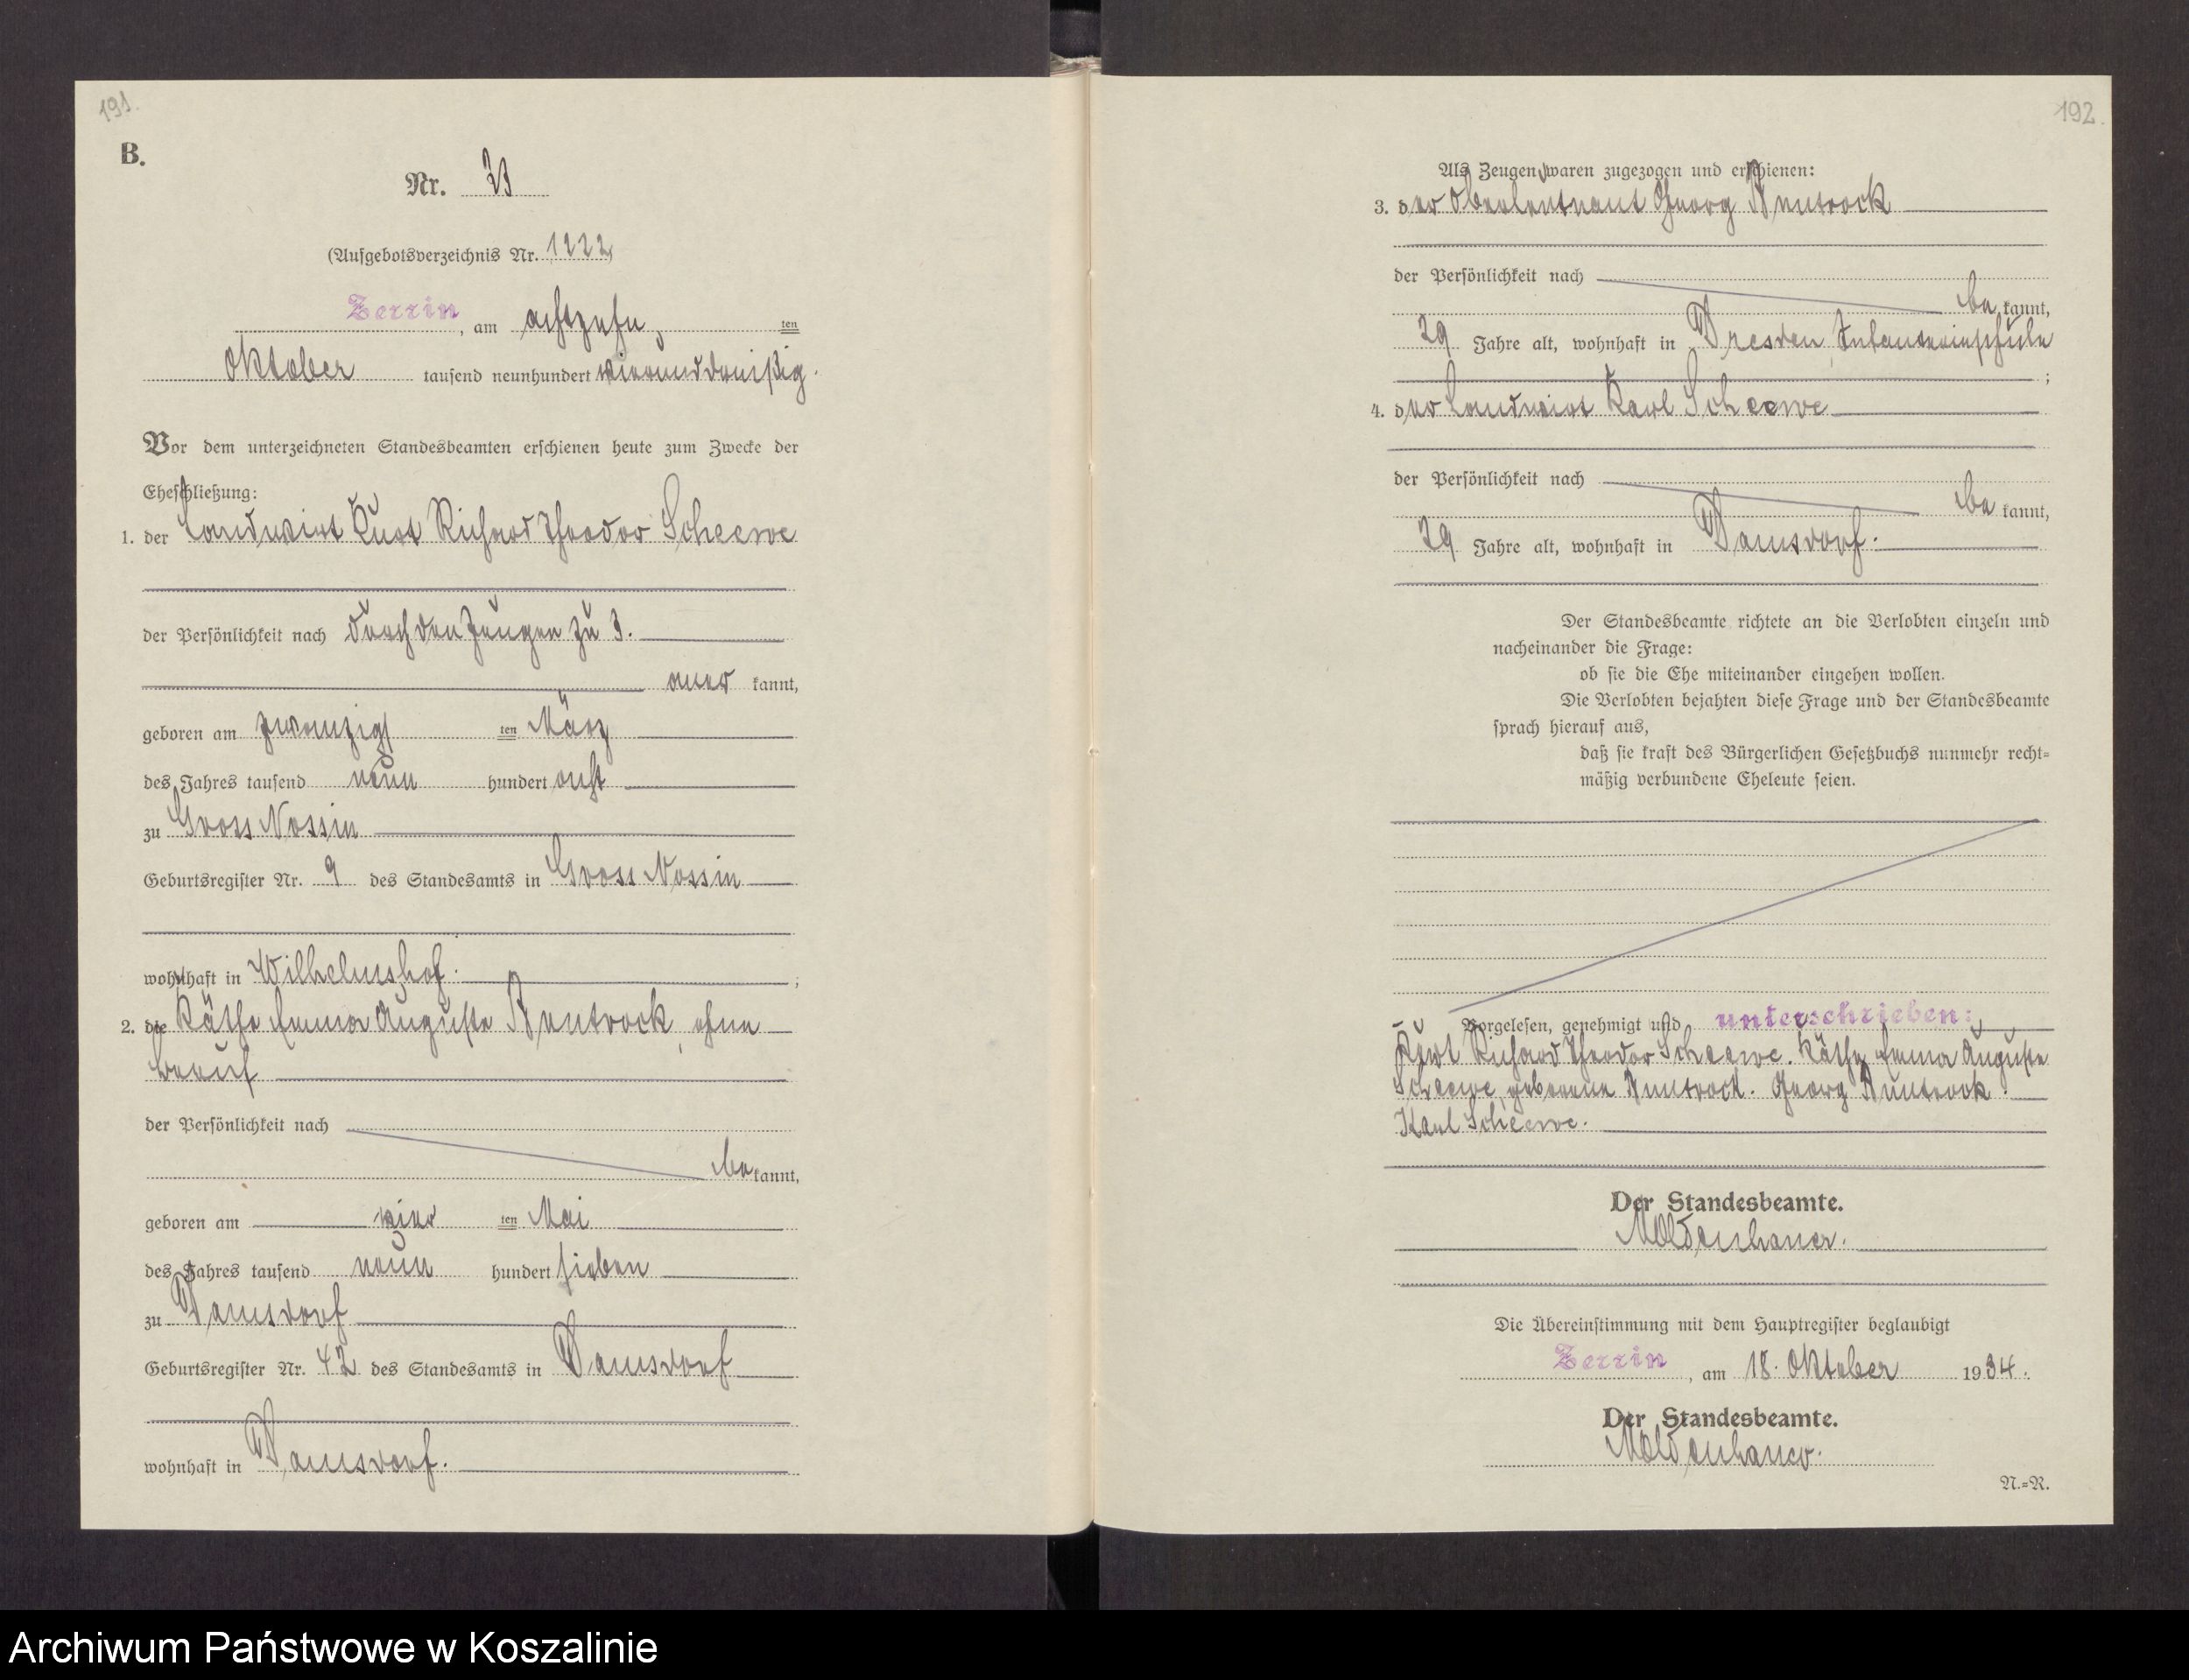 191.
B.
Nr. 23
(Aufgebotsverzeichnis Nr. 1222)
Zerrin, am achtzehn ten
Oktober tausend neunhundert vierunddreißig.
Vor dem unterzeichneten Standesbeamten erschienen heute zum Zwecke der
Eheschließung:
1. der Landwirt Kurt Richard Theodor Scheewe
der Persönlichkeit nach durch den Zeugen zu 3.
aner kannt,
geboren am zwanzigs ten März
des Jahres tausend neun hundert acht
zu Gross Nossin
Geburtsregister Nr. 9 des Standesamts in Gross Nossin
wohnhaft in Wilhelmshof. ;
2. die Käthe Emma Auguste Rentrock, ohne
Beruf
der Persönlichkeit nach
be kannt,
geboren am vier ten Mai
des Jahres tausend neun hundert sieben
zu Damsdorf
Geburtsregister Nr. 42 des Standesamts in Damsdorf
wohnhaft in Damsdorf.
192.
Als Zeugen waren zugezogen und erschienen:
3. der Oberleutnant Georg Rentrock
der Persönlichkeit nach
be kannt,
29 Jahre alt, wohnhaft in Dresden, Infanterieschule
;
4. der Landwirt Karl Scheewe
der Persönlichkeit nach
be kannt,
29 Jahre alt, wohnhaft in Damsdorf.
Der Standesbeamte richtete an die Verlobten einzeln und
nacheinander die Frage:
ob sie die Ehe miteinander eingehen wollen.
Die Verlobten bejahten diese Frage und der Standesbeamte
sprach hierauf aus,
daß sie kraft des Bürgerlichen Gesetzbuchs nunmehr recht=
mäßig verbundene Eheleute seien.
Vorgelesen, genehmigt und unterschrieben:
Kurt Richard Theodor Scheewe. Käthe Emma Auguste
Scheewe, geborene Rentrock. Georg Rentrock.
Karl Scheewe.
Der Standesbeamte.
Moldenhauer.
Die Übereinstimmung mit dem Hauptregister beglaubigt
Zerrin, am 18. Oktober 1934.
Der Standesbeamte.
Moldenhauer.
N.=R.
Archiwum Państwowe w Koszalinie